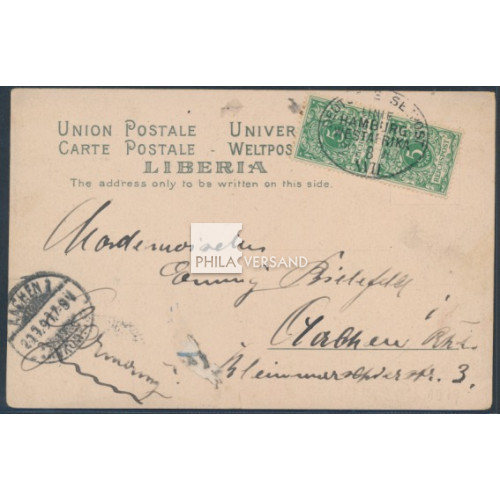 UNION POSTALE UNIVER
CARTE POSTALE WELTPOS
LIBERIA
The address only to be written on this side.
HAMBURG
WESTAFRIKA
XVII
5 5
PHILA VERSAND
Mademoiselle
Emmy Bielefeld
Aachen
Kleinmarschierstr. 3.
Germany
AACHEN 1